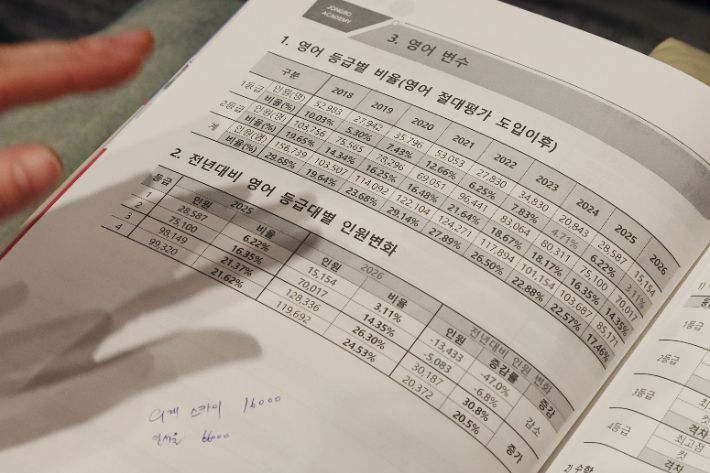 JONGRO
ACADEMY
3. 영어 변수
1. 영어 등급별 비율(영어 절대평가 도입이후)
구분 2018 2019 2020 2021 2022 2023 2024 2025 2026
1등급 인원(명) 52,983 27,942 35,796 53,053 27,830 34,830 20,843 28,587 15,154
비율(%) 10.03% 5.30% 7.43% 12.66% 6.25% 7.83% 4.71% 6.22% 3.11%
2등급 인원(명) 103,756 75,565 78,296 69,051 96,441 83,064 80,311 75,100 70,017
비율(%) 19.65% 14.34% 16.25% 16.48% 21.64% 18.67% 18.17% 16.35% 14.35%
계 인원(명) 156,739 103,507 114,092 122,104 124,271 117,894 101,154 103,687 85,171
비율(%) 29.68% 19.64% 23.68% 29.14% 27.89% 26.50% 22.88% 22.57% 17.46%
2. 전년대비 영어 등급대별 인원변화
등급 2025 2026 전년대비 인원 변화
인원 비율 인원 비율 인원 증감률 증감
1 28,587 6.22% 15,154 3.11% -13,433 -47.0% 감소
2 75,100 16.35% 70,017 14.35% -5,083 -6.8%
3 98,149 21.37% 128,336 26.30% 30,187 30.8% 증가
4 99,320 21.62% 119,692 24.53% 20,372 20.5%
16000
6600
1등급
2등급
3등급
4등급 최고점
컷
격차
2) 수학